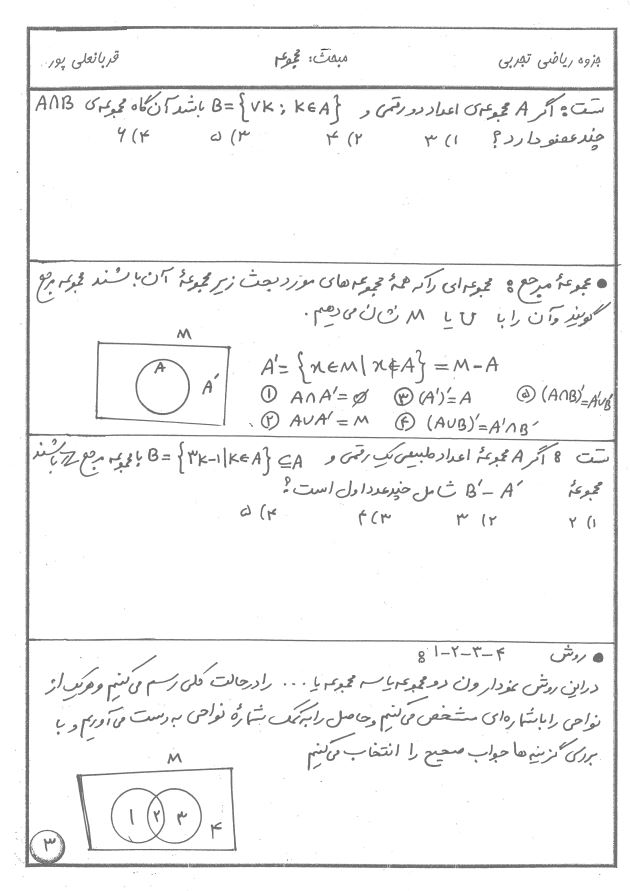 جزوه ریاضی تجربی مبحث: مجموعه قربانعلی پور
تست: اگر A مجموعه‌ی اعداد دو رقمی و B={۷K ; K∈A} باشد آن گاه مجموعه‌ی A∩B
چند عضو دارد؟ ۱) ۳ ۲) ۴ ۳) ۵ ۴) ۶
● مجموعهٔ مرجع: مجموعه‌ای را که همهٔ مجموعه‌های مورد بحث زیر مجموعهٔ آن باشند مجموعه مرجع
گویند و آن را با U یا M نشان می‌دهیم.
M
A
A′
A′={x∈M|x∉A}=M-A
① A∩A′=∅ ③ (A′)′=A ⑤ (A∩B)′=A′∪B′
② A∪A′=M ④ (A∪B)′=A′∩B′
تست: اگر A مجموعهٔ اعداد طبیعی یک رقمی و B={۳K-۱|K∈A}⊆A با مجموعه مرجع Z باشند
مجموعهٔ B′-A′ شامل چند عدد اول است؟
۱) ۲ ۲) ۳ ۳) ۴ ۴) ۵
● روش ۱-۲-۳-۴:
در این روش نمودار ون دو مجموعه یا سه مجموعه یا... را در حالت کلی رسم می‌کنیم و هریک از
نواحی را با شماره‌ای مشخص می‌کنیم و حاصل را به کمک شمارهٔ نواحی به دست می‌آوریم و با
بررسی گزینه ها جواب صحیح را انتخاب می‌کنیم
M
۱ ۲ ۳ ۴
۳